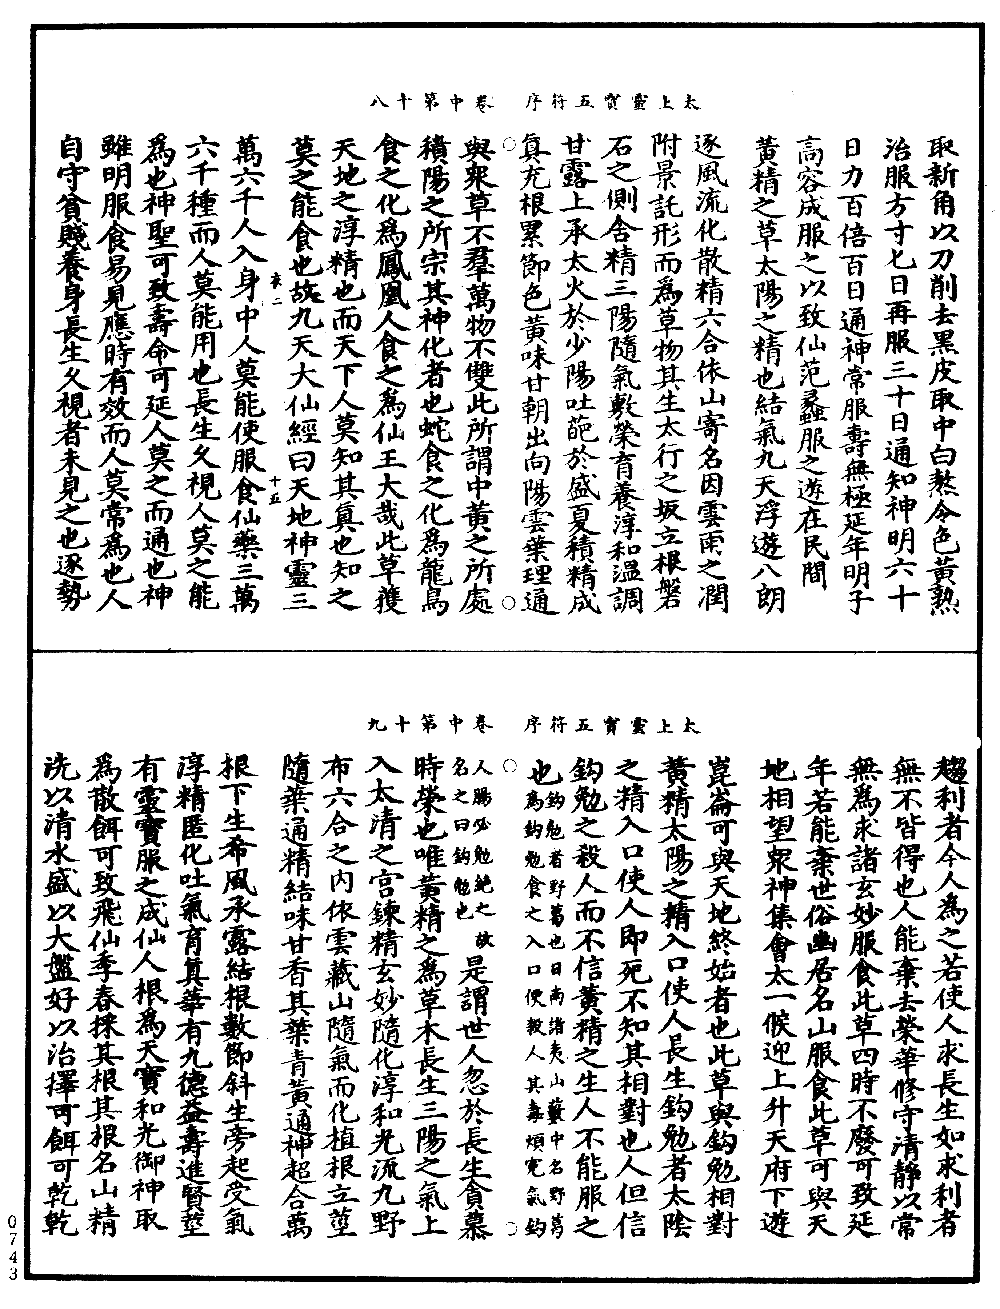 太上靈寶五符序　卷中第十八
取新角以刀削去黑皮取中白熬令色黃熟
治服方寸七日再服三十日通知神明六十
日力百倍百日通神常服壽無極延年明子
高容成服之以致仙范蠡服之遊在民間
黃精之草太陽之精也結氣九天浮遊八朗
逐風流化散精六合依山寄名因雲雨之潤
附景託形而為草物其生太行之坂立根磐
石之側舍精三陽隨氣敷榮育養淳和溫調
甘露上承太火於少陽吐葩於盛夏積精成
真充根累節色黃味甘朝出向陽雲葉理通
與眾草不羣萬物不雙此所謂中黃之所處
積陽之所宗其神化者也蛇食之化為龍鳥
食之化為鳳凰人食之為仙王大哉此草獲
天地之淳精也而天下人莫知其真也知之
莫之能食也故九天大仙經曰天地神靈三
衣二　十五
萬六千人入身中人莫能使服食仙藥三萬
六千種而人莫能用也長生久視人莫之能
為也神聖可致壽命可延人莫之而通也神
雖明服食易見應時有效而人莫常為也人
自守貧賤養身長生久視者未見之也逐勢
太上靈寶五符序　卷中第十九
趨利者今人為之若使人求長生如求利者
無不皆得也人能棄去榮華修守清靜以常
無為求諸玄妙服食此草四時不廢可致延
年若能棄世俗幽居名山服食此草可與天
地相望眾神集會太一候迎上升天府下遊
崑崙可與天地終始者也此草與鈎勉相對
黃精太陽之精入口使人長生鈎勉者太陰
之精入口使人即死不知其相對也人但信
鈎勉之殺人而不信黃精之生人不能服之
也鈎勉者野葛也日南諸夷山藪中名野葛
為鈎勉食之入口便殺人其毒煩寃氣鈎
人腸必勉絕之故
名之曰鈎勉也
是謂世人忽於長生貪慕
時榮也唯黃精之為草木長生三陽之氣上
入太清之宮鍊精玄妙隨化淳和光流九野
布六合之內依雲藏山隨氣而化植根立莖
隨葉通精結味甘香其葉青黃通神超合萬
根下生希風承露結根數節斜生旁起受氣
淳精匿化吐氣育真華有九德益壽進賢莖
有靈寶服之成仙人根為天寶和光御神取
為散餌可致飛仙季春採其根其根名山精
洗以清水盛以大盤好以治擇可餌可乾乾
0743